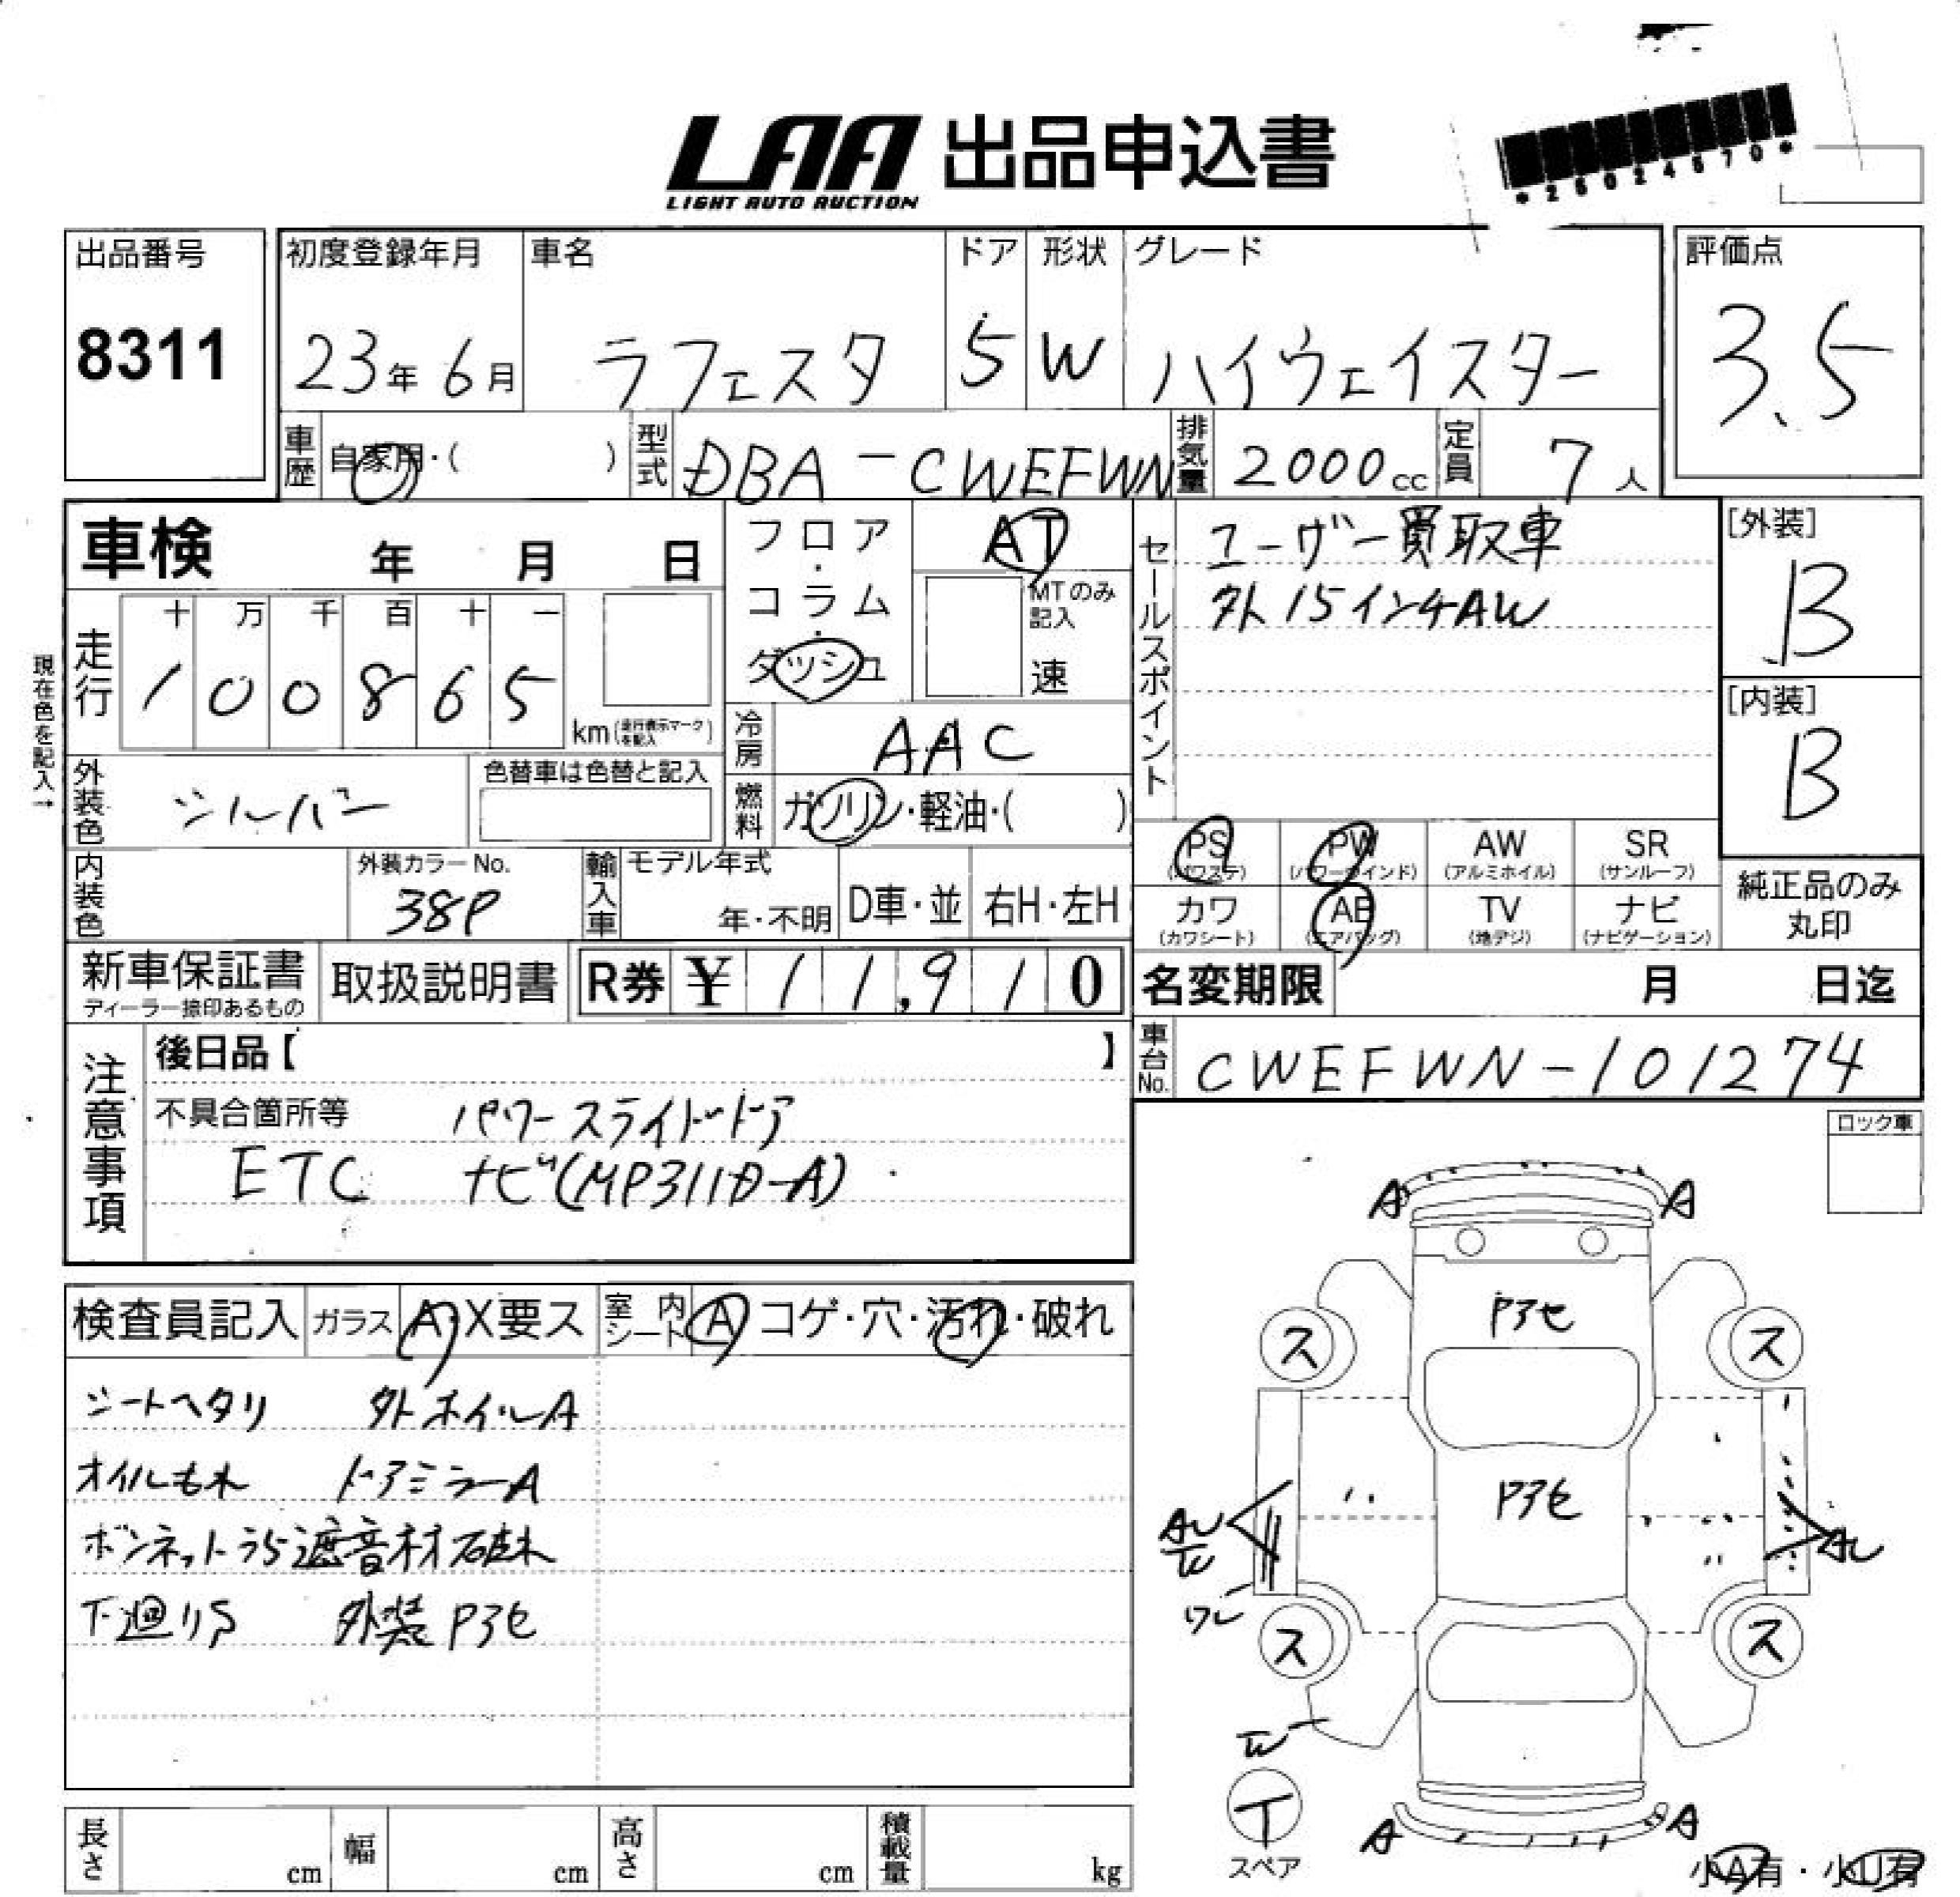 LAA 出品申込書
LIGHT AUTO AUCTION
*25024570*
出品番号
8311
初度登録年月
23年 6月
車名
ラフェスタ
ドア
5
形状
W
グレード
ハイウェイスター
評価点
3.5
車歴
自家用・( )
型式
DBA-CWEFWN
排気量
2000cc
定員
7人
車検 年 月 日
フロア・コラム・ダッシュ
AT
MTのみ記入
速
セールスポイント
ユーザー買取車
外15インチAW
[外装]
B
[内装]
B
現在色を記入→
走行
十 万 千 百 十 一
1 0 0 8 6 5
km(走行表示マークを記入)
冷房
AAC
外装色
シルバー
色替車は色替と記入
燃料
ガソリン・軽油・( )
PS
(パワステ)
PW
(パワーウインド)
AW
(アルミホイル)
SR
(サンルーフ)
カワ
(カワシート)
AB
(エアバッグ)
TV
(地デジ)
ナビ
(ナビゲーション)
純正品のみ
丸印
内装色
外装カラーNo.
38P
輸入車
モデル年式
年・不明
D車・並
右H・左H
新車保証書
ディーラー捺印あるもの
取扱説明書
R券 ¥ 11,910
名変期限 月 日迄
車台No.
CWEFWN-101274
注意事項
後日品【 】
不具合箇所等 パワースライドドア
ETC ナビ(MP311D-A)
ロック車
検査員記入
ガラス A・X要ス
室内シート
A コゲ・穴・汚れ・破れ
シートヘタリ 外ホイルA
オイルもれ ドアミラーA
ボンネットうら遮音材破れ
下廻りS 外装Pヲセ
A A
Pヲセ
ス ス
Pヲセ
AU
AU
ワレ
ス ス
T
スペア
A A
小A有・小U有
長さ cm
幅 cm
高さ cm
積載量 kg